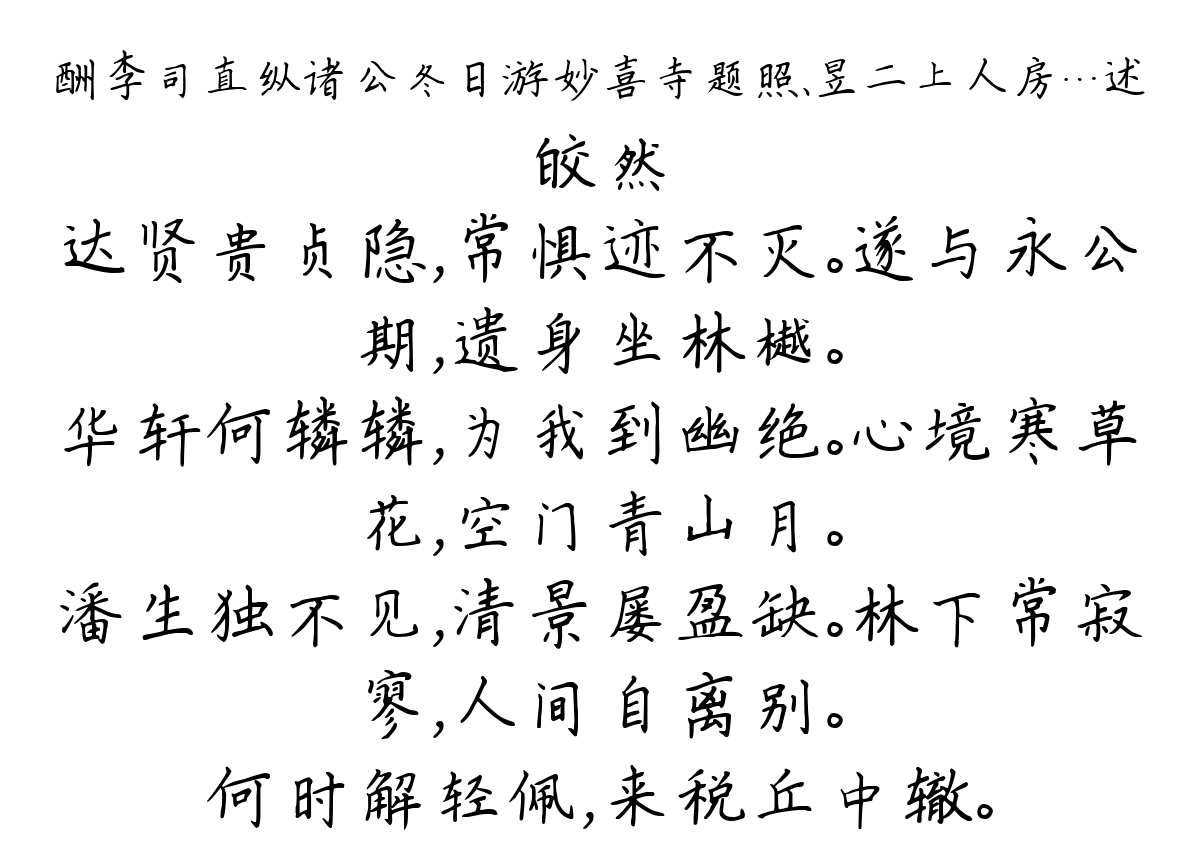 酬李司直纵诸公冬日游妙喜寺题照、昱二上人房…述
皎然
达贤贵贞隐,常惧迹不灭。遂与永公
期,遗身坐林樾。
华轩何辚辚,为我到幽绝。心境寒草
花,空门青山月。
潘生独不见,清景屡盈缺。林下常寂
寥,人间自离别。
何时解轻佩,来税丘中辙。